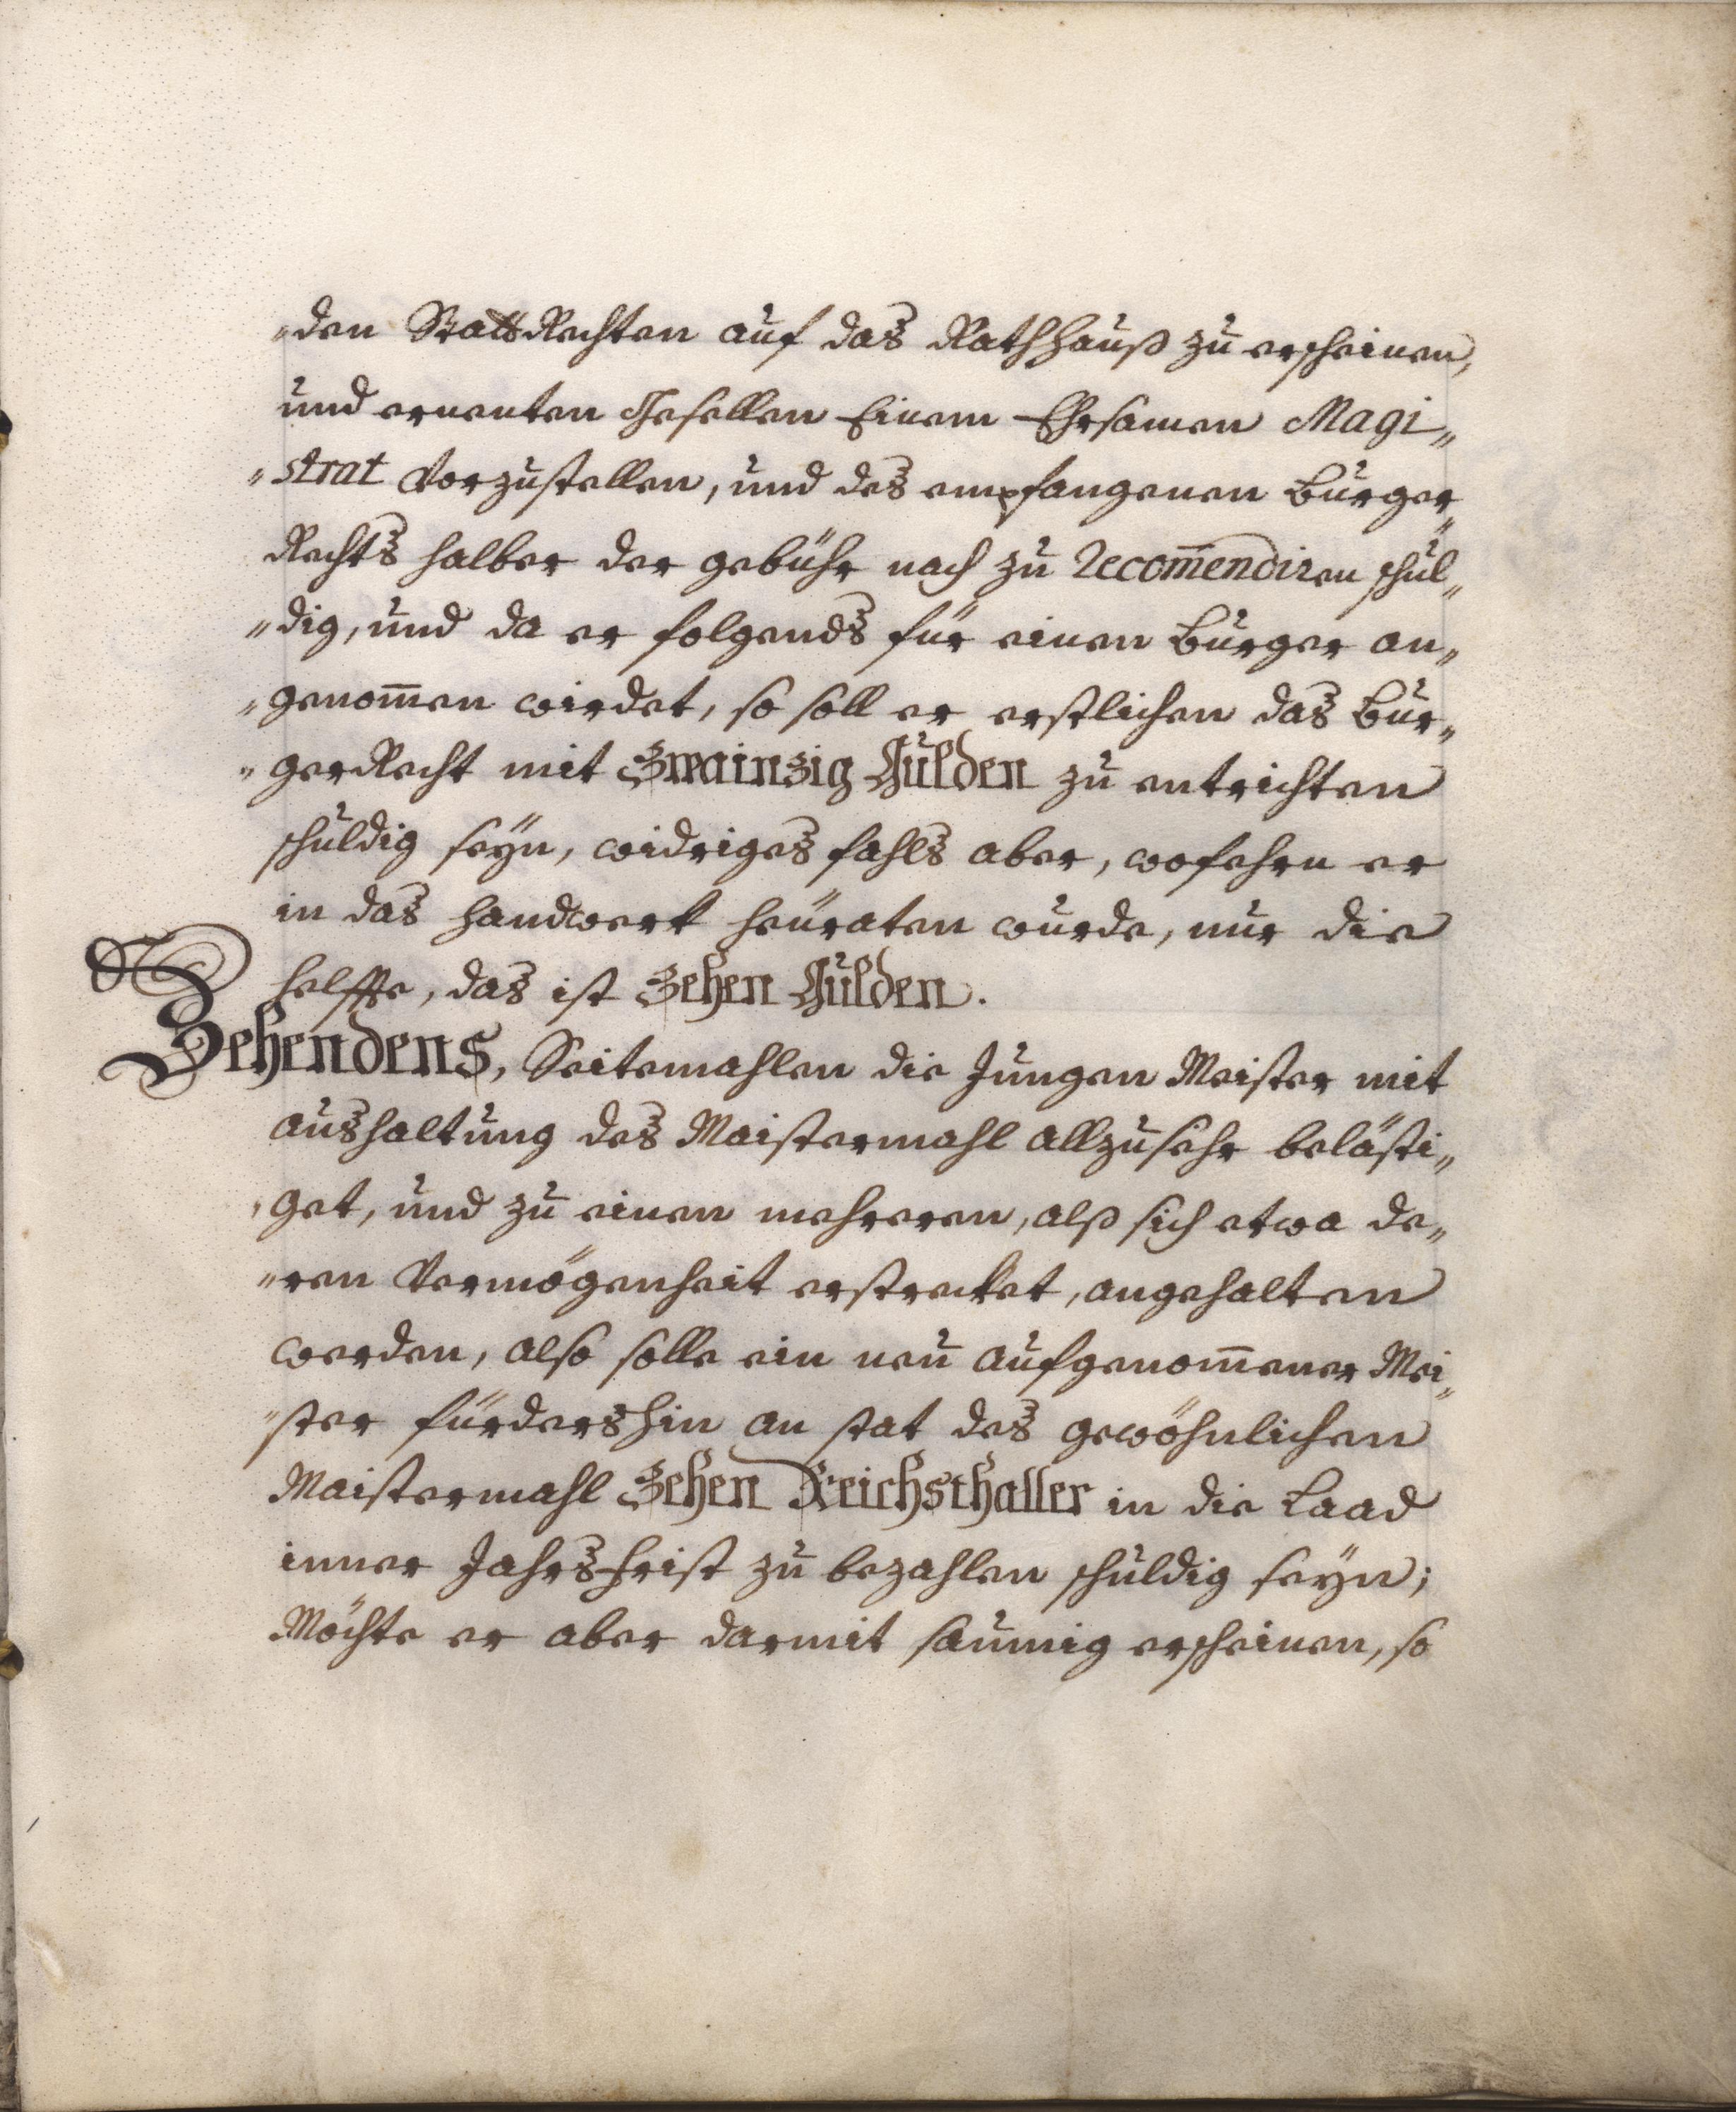 „den StattRechten auf das Rathhauß zu erscheinen,
und ernenten Gesellen Einem Ehrsamen Magi„
„strat vorzustellen, und des empfangenen Burger„
Rechts halber der gebühr nach zu recom̅endiren schul„
„dig, und da er folgends für einen Burger an„
„genom̅en wirdet, so soll er erstlichen das Bur„
„gerRecht mit Zwainzig Gulden zu entrichten
schuldig seÿn, widriges fahls aber, wofehrn er
in das Handwerk heüraten wurde, nur die
helffte, das ist Zehen Gulden.
Zehendens, Seitemahlen die Jungen Meister mit
aushaltung des Maistermahl allzusehr belästi„
„get, und zu einen mehreren, alß sich etwa de„
„ren Vermögenheit erstrecket, angehalten
werden, also solle ein neu aufgenom̅ener Mei„
„ster fürdershin an stat des gewöhnlichen
Maistermahl Zehen Reichsthaller in die Laad
inner Jahrsfrist zu bezahlen schuldig seÿn;
Möchte er aber darmit saumig erscheinen, so